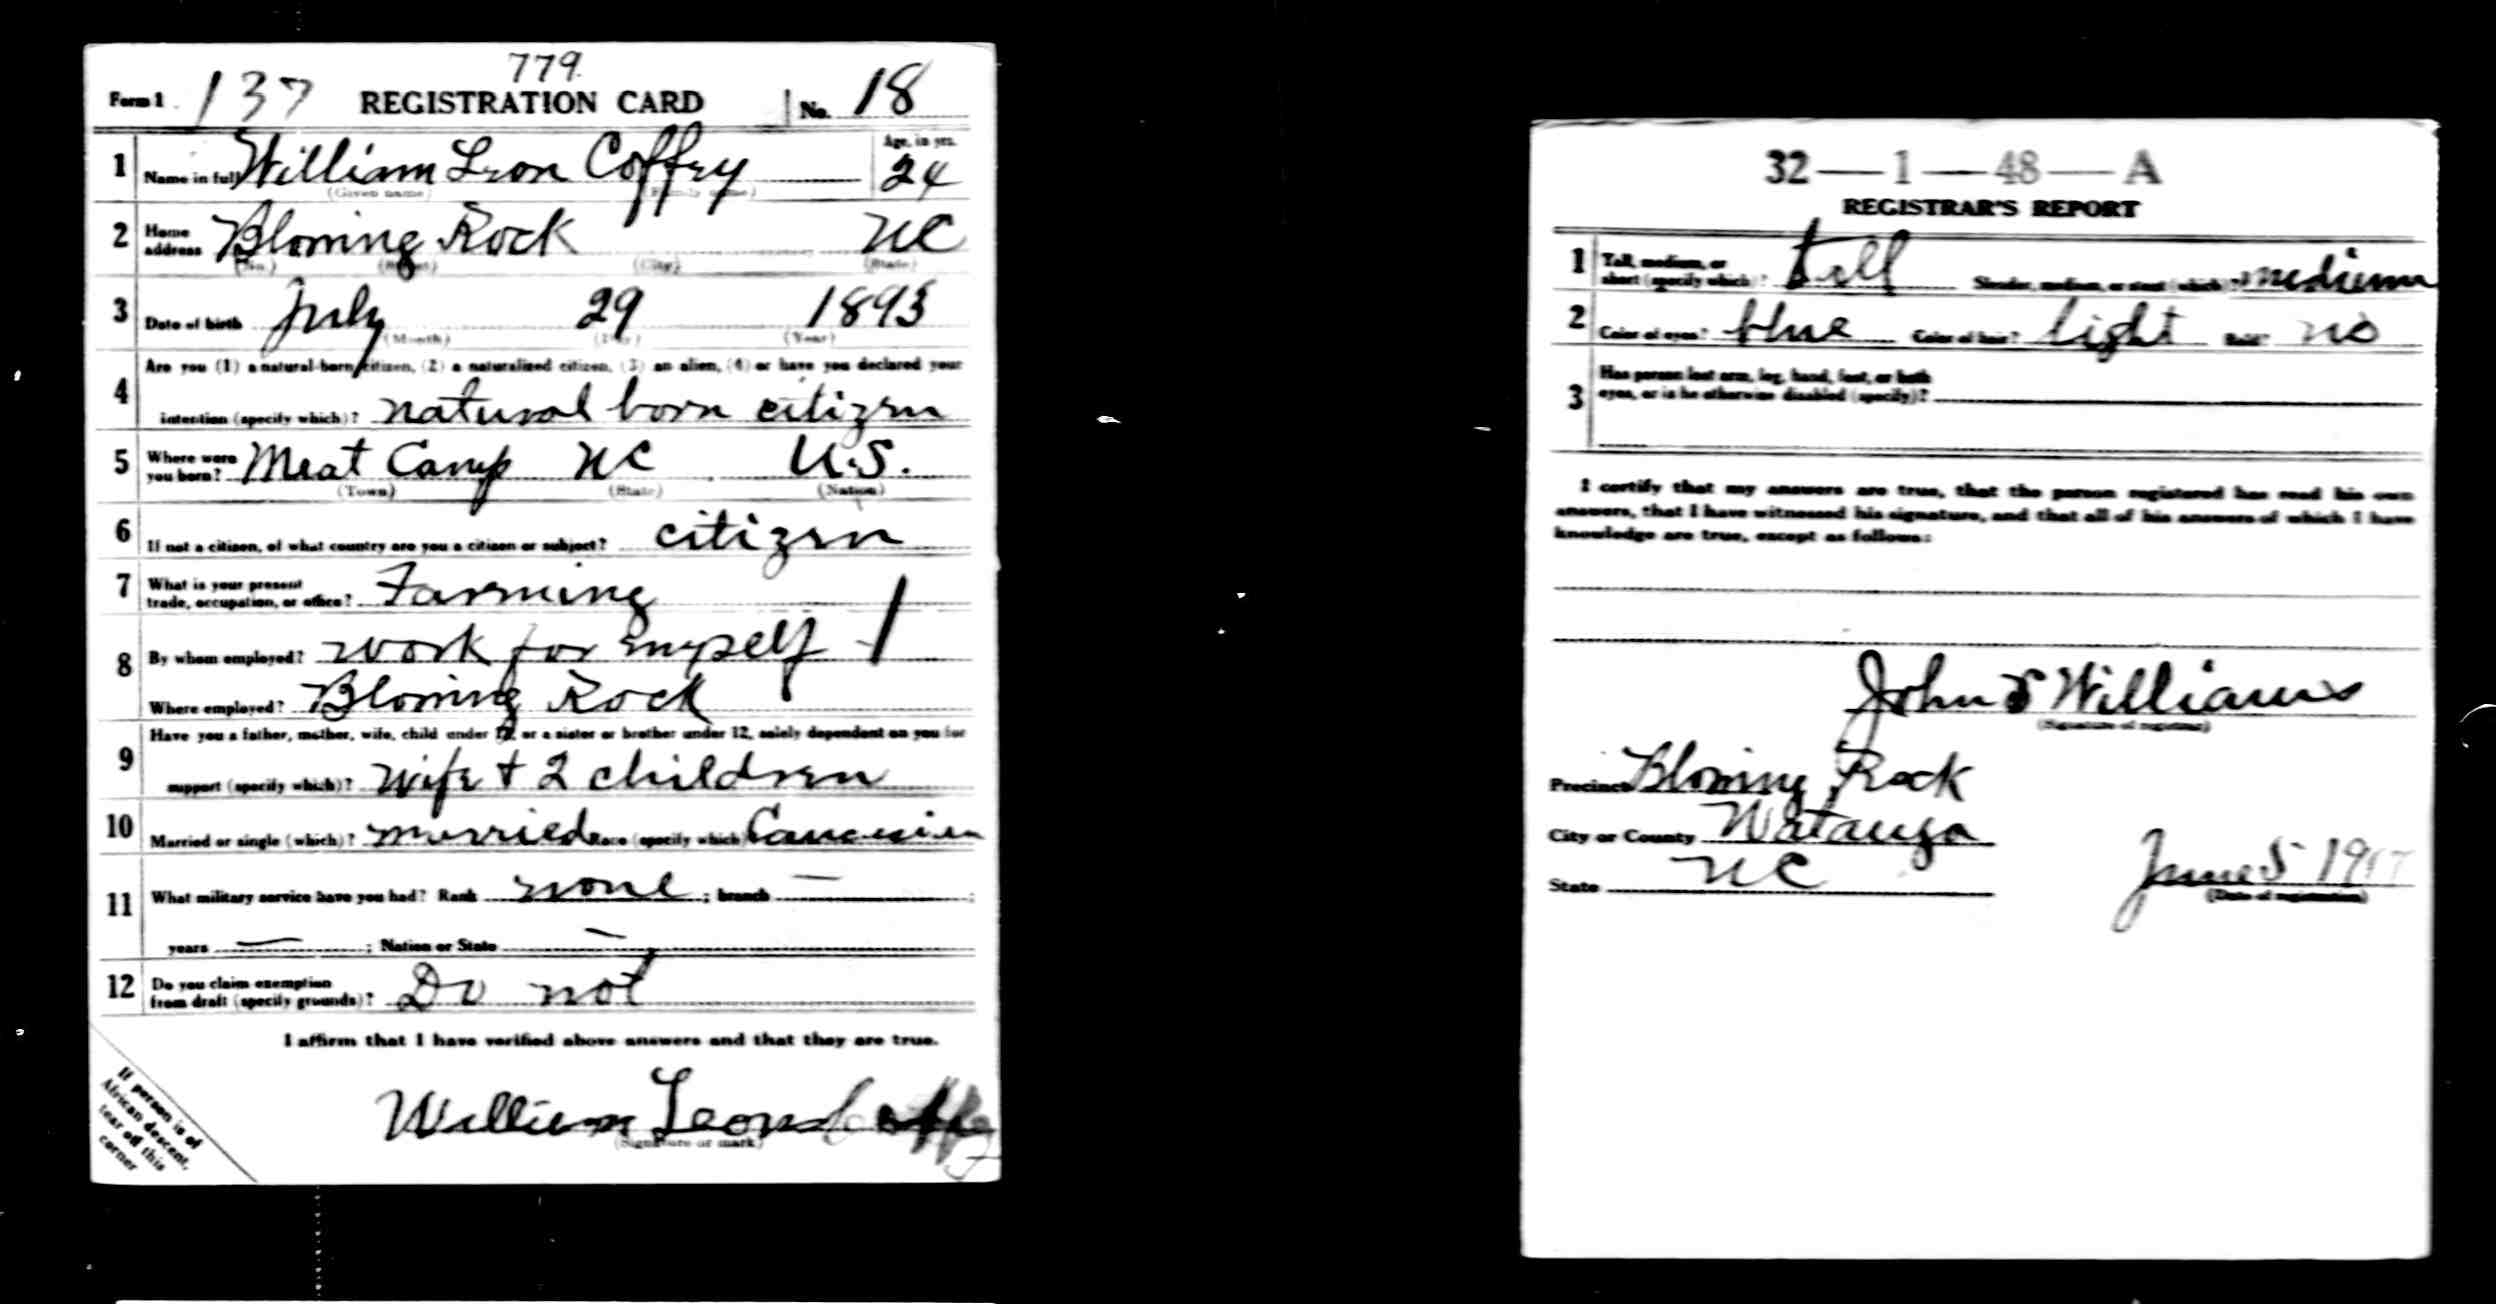 779
Form 1 137 REGISTRATION CARD No. 18
1 Name in full William Leon Coffey Age, in yrs. 24
(Given name) (Family name)
2 Home address Bloming Rock NC
(No.) (Street) (City) (State)
3 Date of birth July 29 1893
(Month) (Day) (Year)
4 Are you (1) a natural-born citizen, (2) a naturalized citizen, (3) an alien, (4) or have you declared your
intention (specify which)? natural born citizen
5 Where were you born? Meat Camp NC U.S.
(Town) (State) (Nation)
6 If not a citizen, of what country are you a citizen or subject? citizen
7 What is your present trade, occupation, or office? Farming
8 By whom employed? work for myself 1
Where employed? Bloming Rock
9 Have you a father, mother, wife, child under 12, or a sister or brother under 12, solely dependent on you for
support (specify which)? wife + 2 children
10 Married or single (which)? married Race (specify which)? Caucasian
11 What military service have you had? Rank none ; branch — ;
years — ; Nation or State —
12 Do you claim exemption from draft (specify grounds)? Do not
I affirm that I have verified above answers and that they are true.
William Leon Coffey
(Signature or mark)
If person is of
African descent,
tear off this
corner
32—1—48—A
REGISTRAR'S REPORT
1 Tall, medium, or short (specify which)? tall Slender, medium, or stout (which)? medium
2 Color of eyes? blue Color of hair? light Bald? no
3 Has person lost arm, leg, hand, foot, or both
eyes, or is he otherwise disabled (specify)?
I certify that my answers are true, that the person registered has read his own
answers, that I have witnessed his signature, and that all of his answers of which I have
knowledge are true, except as follows:
John S Williams
(Signature of registrar)
Precinct Bloming Rock
City or County Watauga
State NC June 5 1917
(Date of registration)